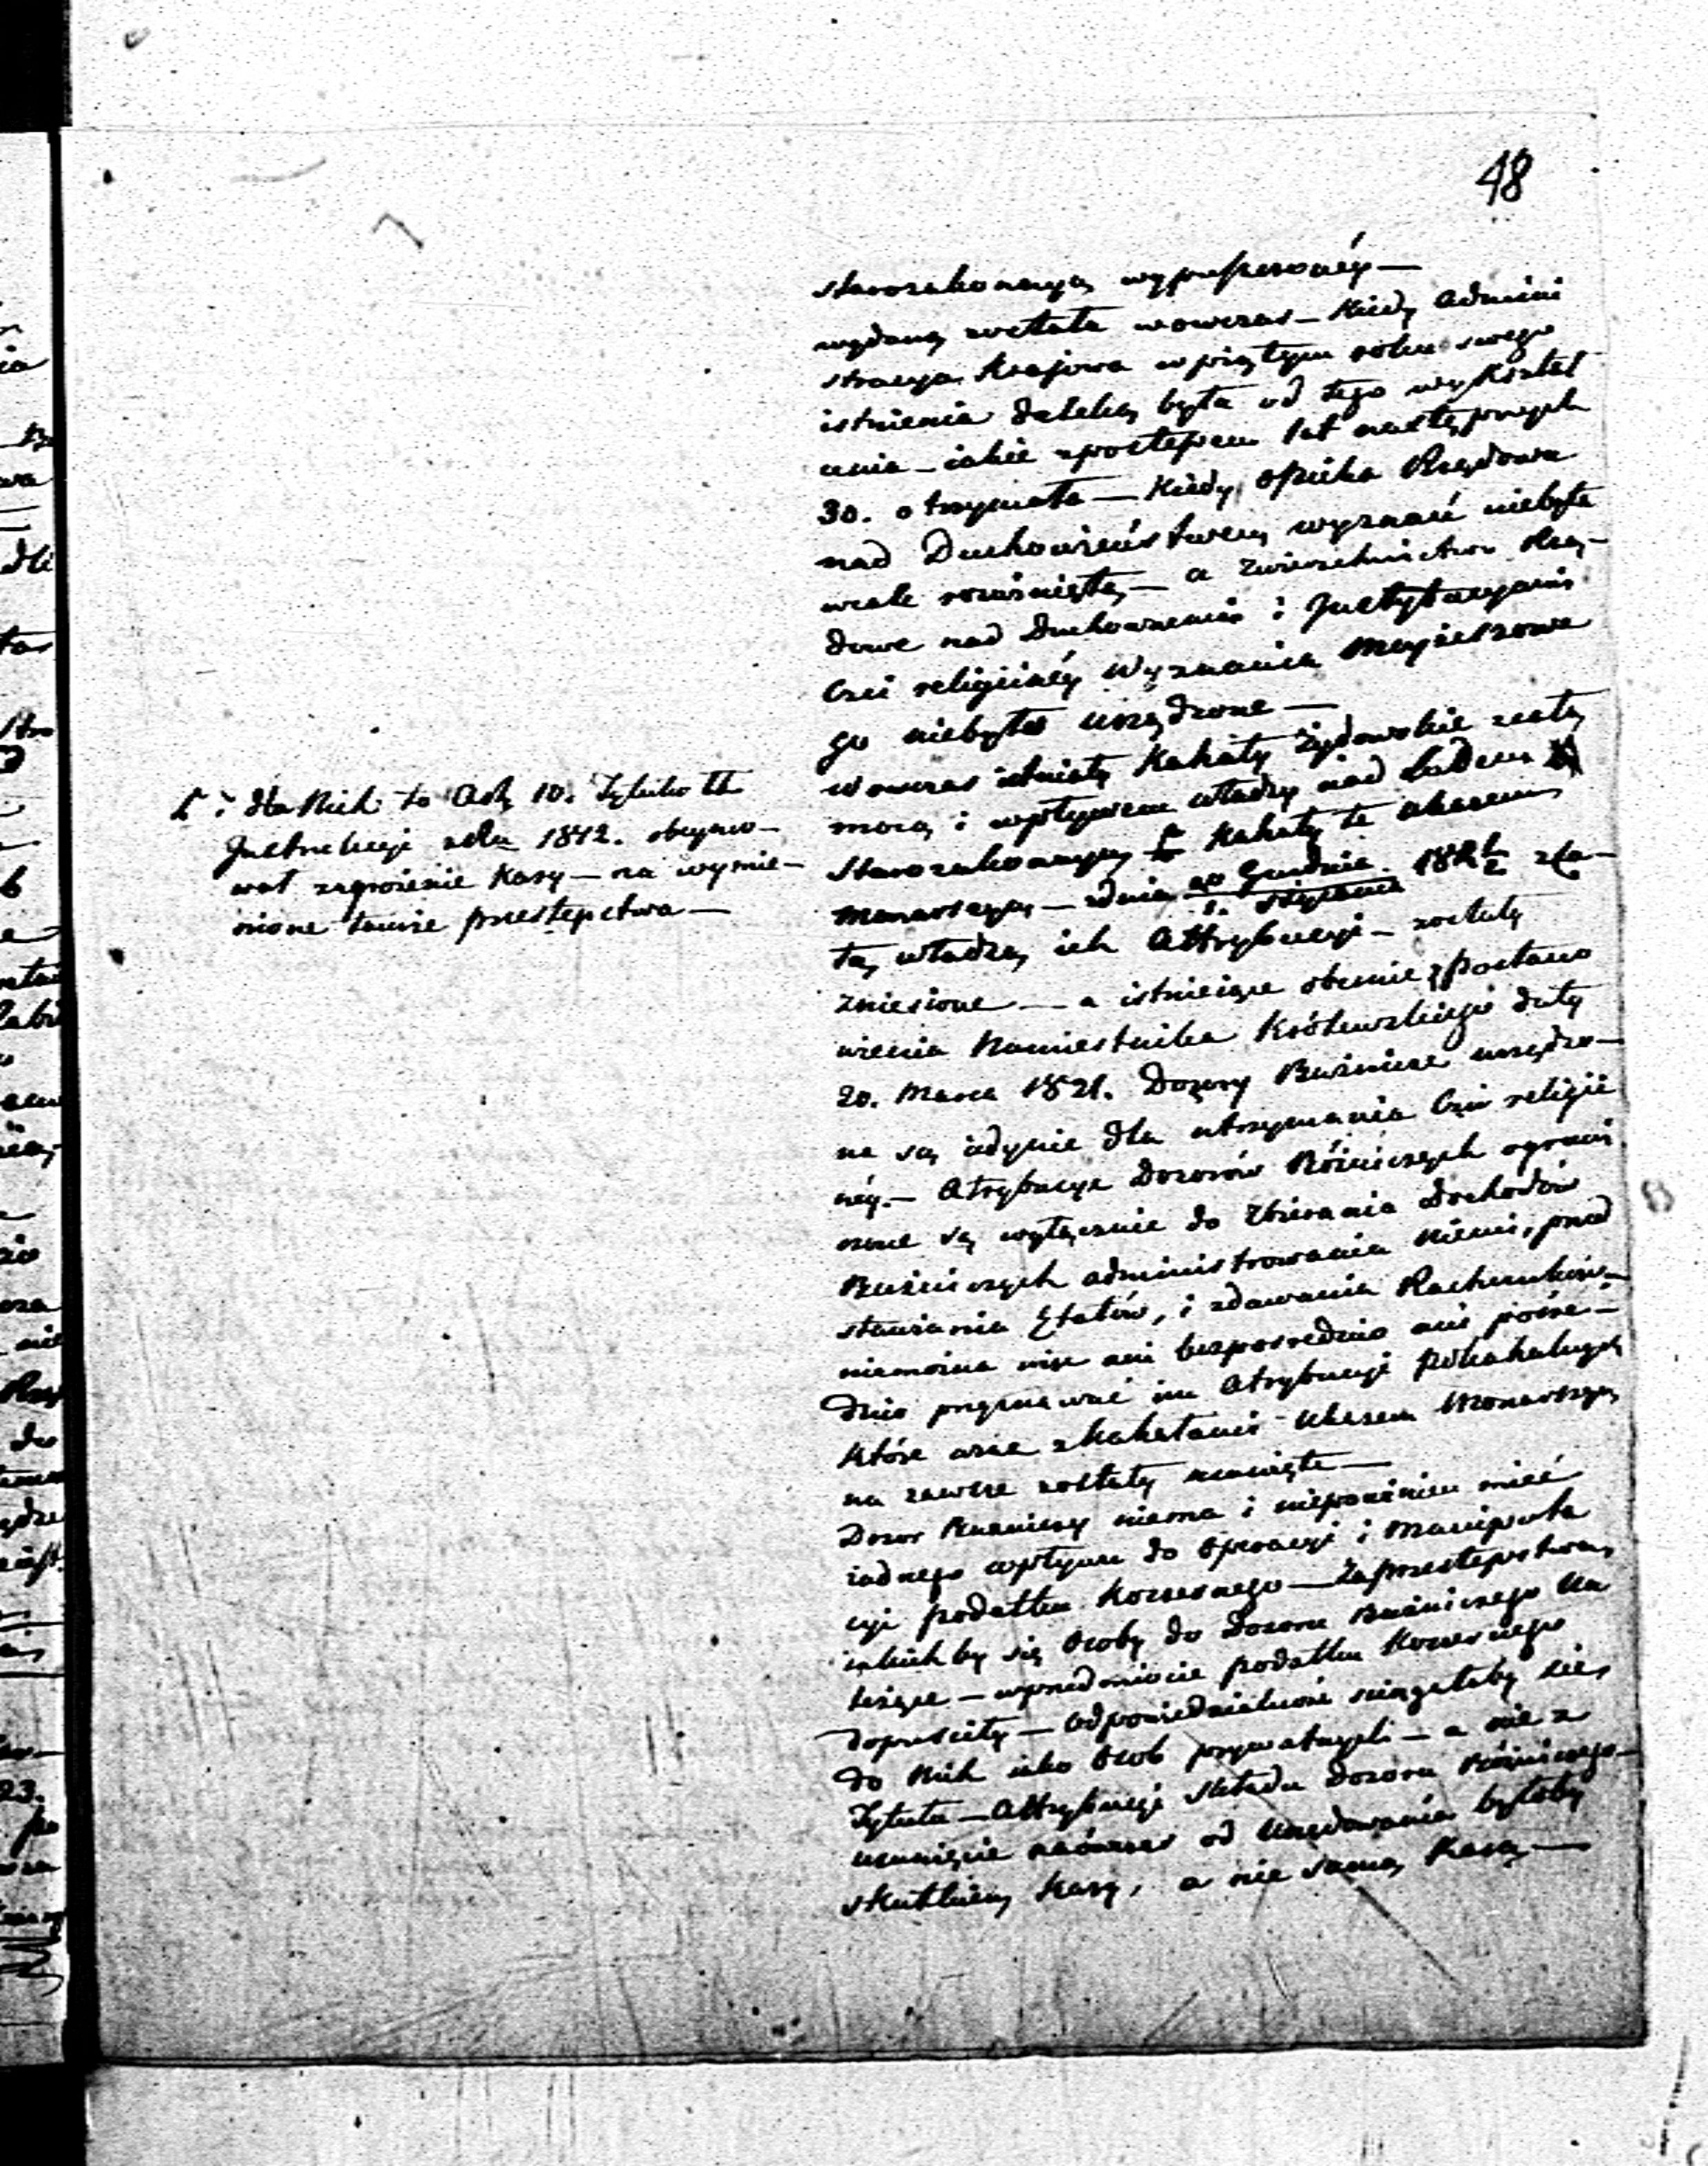 48
starozakonnych wypuszczonéy —
wydaną została wowczas — kiedy Admini
stracya Krajowa w piątym roku swego
istnienia daleką była od tego wykształ
cenia — iakie z postępem lat następnych
30. otrzymała — kiedy opieka Rządowa
nad Duchowieństwem wyznań niebyła
wcale rozwinięta, — a Zwierzchnictwo Rzą-
dowe nad Duchownemi i Instytucyami
Czci religijnéy Wyznania Mojżeszowe
go niebyło urządzone —
wowczas istniały Kahały żydowskie z całą
mocą i wpływem władzy nad Ludem
Starozakonnym Kahały te ukazem
Monarszym — z dnia 20 Grudnia / 1. Stycznia 1821/2 z ca-
łą władzą ich Attrybucyi — zostały
zniesione — a istniejące obecnie z postano
wienia Namiestnika Królewskiego daty
20. Marca 1821. Dozory Bużnicze urządzo-
ne są jedynie dla utrzymania Czci religii
néy. — Atrybucye Dozorów Bóżniczych ograni
czone są wyłącznie do zbierania dochodów
Bużniczych administrowania niemi, przed
stawiania Etatów, i zdawania Rachunków —
niemożna więc ani bezposrednio ani pośre-
dnio przyznawać im Atrybucyi pokahalnych
które wraz z kahałami Ukazem Monarszym
na zawsze zostały usunięte —
Dozor Bużniczy niema i niepowinien mieć
żadnego wpływu do Operacyi i Manipula
cyi podatku Koszernego — Za przestępstwa,
iakichby się Osoby do Dozoru Bużniczego na
leżące — w przedmiocie podatku Koszernego
dopuściły — Odpowiedzialność ściągałaby się
do nich iako Osob prywatnych — a nie z
Tytułu — Attrybucyi Składu Dozoru Bóżniczego —
usunięcie zaówczas od Urzędowania byłoby
skutkiem Kary, a nie samą Karą —
dla nich to Art. 10. Tytułu II
Instrukcyi z roku 1812. obeymo-
wał zagrożenie Kary — za wymie-
nione tamże przestępstwa —